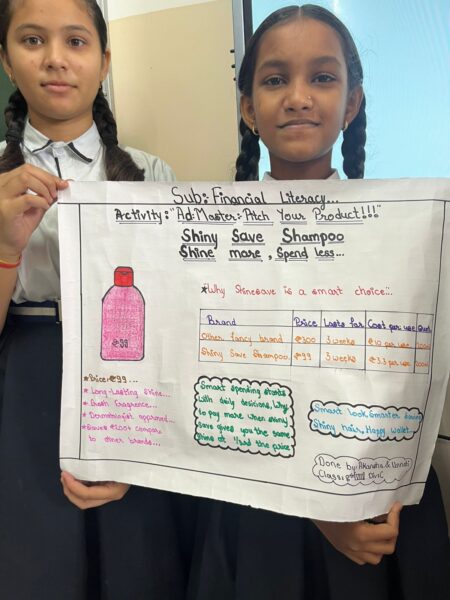 Sub: Financial Literacy...
Activity: "Ad-Master: Pitch Your Product!!!"
Shiny Save Shampoo
Shine more, Spend less...
*Why Shinesave is a smart choice...
Brand Price Lasts for Cost per use
Other fancy brand ₹300 3 weeks ₹10 per use
Shiny Save Shampoo ₹99 3 weeks ₹3.3 per use
₹99
* Price: ₹99....
* Long-Lasting Shine...
* Fresh Fragrance...
* Dermatologist approved...
* Saves ₹200+ compare
to other brands...
Smart spending starts
with daily decisions, Why
to pay more when shiny
save gives you the same
shine at 1/3rd the price
Smart look, Smarter
Shiny hair, Happy wallet
Done by: &
Class: